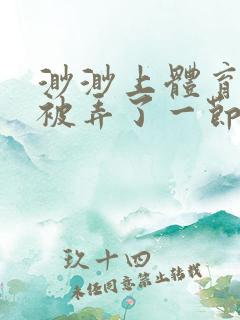 渺渺上體育
被弄了一節
玖十四
未任同意禁止转载